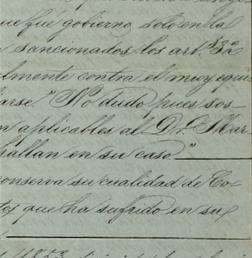 que fué gobierno solo en la
sancionados los art.s 32
lmente contra el muy equi
arse." No dudo pues sos
n aplicables al Dr. Mar
hallan en su caso."
conserva su cualidad de Co-
tes que ha sufrido en su